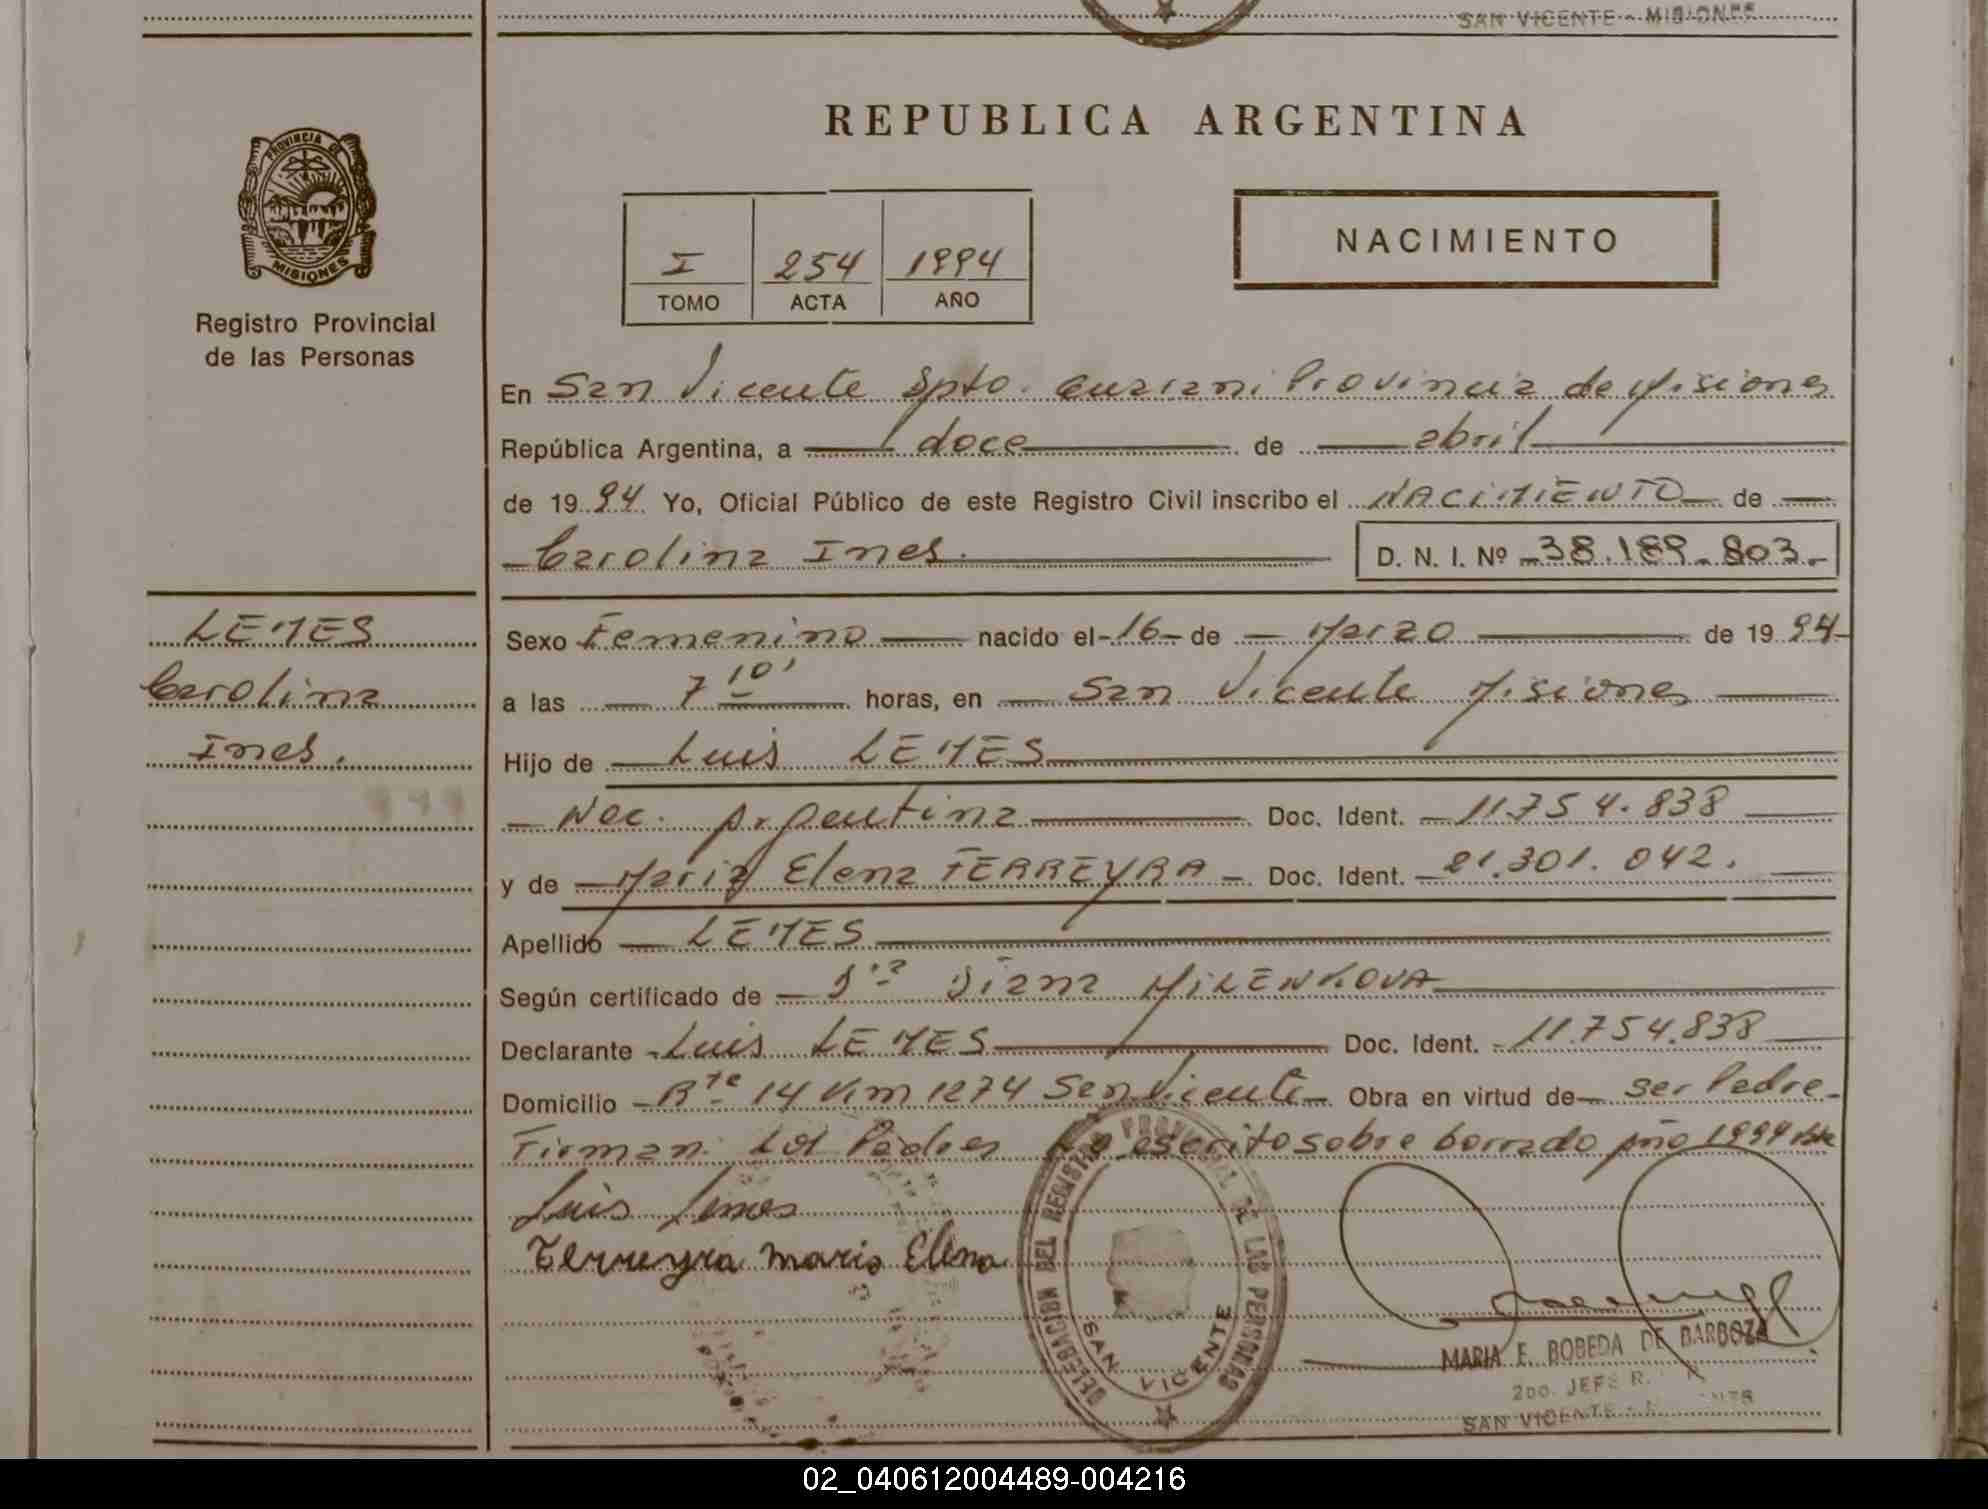 SAN VICENTE - MISIONES
REPUBLICA ARGENTINA
PROVINCIA DE
MISIONES
Registro Provincial
de las Personas
I 254 1994
TOMO ACTA AÑO
NACIMIENTO
En San Vicente Dpto. Guarani Provincia de Misiones
República Argentina, a doce de abril
de 1994 Yo, Oficial Público de este Registro Civil inscribo el NACIMIENTO de
Carolina Ines. D. N. I. Nº 38.189.803.-
LEMES
Carolina
Ines.
Sexo Femenino nacido el -16- de Marzo de 1994
a las 7 10' horas, en San Vicente Misiones
Hijo de Luis LEMES
Nac. Argentina Doc. Ident. 11.754.838
y de Maria Elena FERREYRA Doc. Ident. 21.301.042.
Apellido LEMES
Según certificado de Dra Diana MILENKOVA
Declarante Luis LEMES Doc. Ident. 11.754.838
Domicilio Rta 14 Km 1274 San Vicente Obra en virtud de ser Padre
Firman: Los Padres Lo escrito sobre borrado año 1994
Luis Lemes
Ferreyra Maria Elena
DELEGACION DEL REGISTRO PROVINCIAL DE LAS PERSONAS
SAN VICENTE
MARIA E. BOBEDA DE BARBOZA
2DO. JEFE R.
SAN VICENTE -
02_040612004489-004216